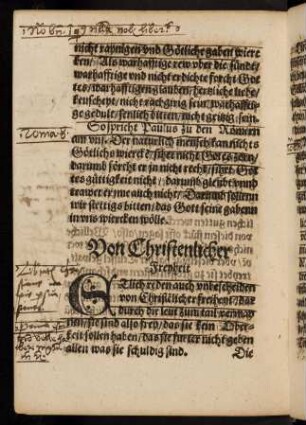 nicht raynigen vnd Götliche gaben wiercken
ben/ Als warhafftige rew vber die sünde/
warhafftige vnd nicht erdichte forcht Got
tes/ warhafftigen glauben/ hertzliche liebe/
keuscheyt/ nicht rachgirig sein/ warhafftige
gedult/ senlich bitten/ nicht geitzig sein.
So spricht Paulus zu den Römern
am viij. Der naturlich mensch kan nichts
Götlichs wiercken/ sihet nicht Gotes zorn/
darumb förcht er jn nicht recht/ sihet Got
tes gütigkeit nicht/ darumb gleubt vnnd
trawet er jme auch nicht/ Darumb sollenn
wir stettigs bitten/ das Gott seine gabenn
in vns wiercken wölle.
Von Christenlicher
Freyheit
ETlich reden auch vnbescheiden
von Christlicher freiheit/ dar
durch die leut zum tail vermay
nen/ sie sind also frey/ das sie kein Ober-
keit sollen haben/ das sie fürter nicht geben
sollen was sie schuldig sind. Die
Roma 8.